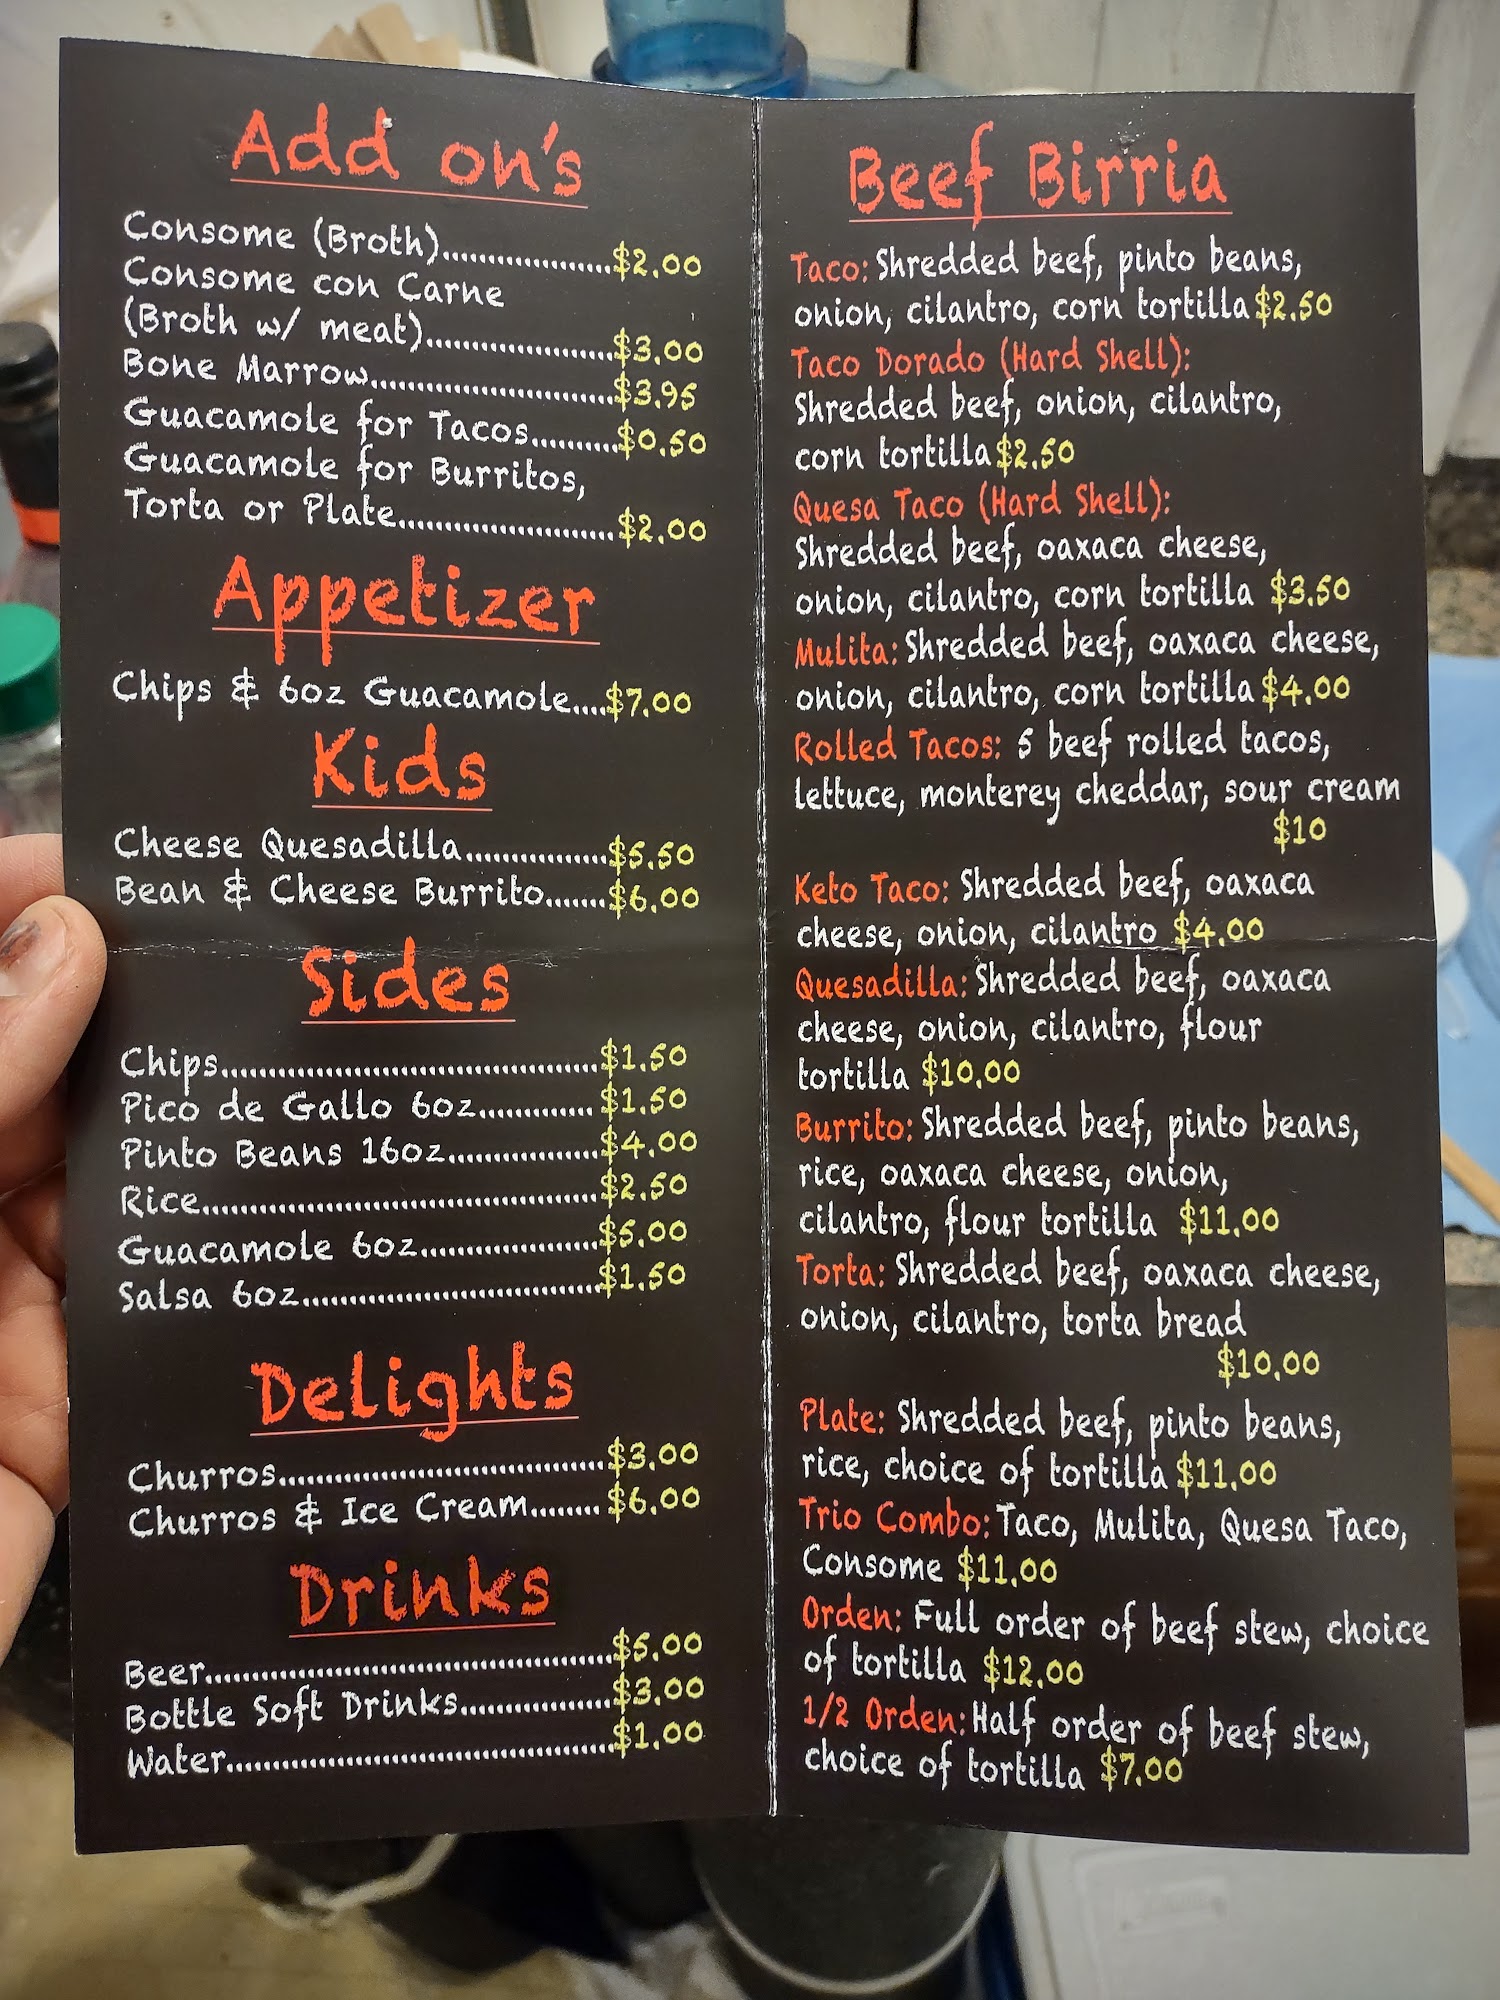 Add on's
Consome (Broth)....................$2.00
Consome con Carne
(Broth w/ meat)......................$3.00
Bone Marrow............................$3.95
Guacamole for Tacos..........$0.50
Guacamole for Burritos,
Torta or Plate.........................$2.00
Appetizer
Chips & 6oz Guacamole....$7.00
Kids
Cheese Quesadilla.................$5.50
Bean & Cheese Burrito.......$6.00
Sides
Chips............................................$1.50
Pico de Gallo 6oz..............$1.50
Pinto Beans 16oz..................$4.00
Rice...............................................$2.50
Guacamole 6oz.....................$5.00
Salsa 6oz...................................$1.50
Delights
Churros.......................................$3.00
Churros & Ice Cream........$6.00
Drinks
Beer................................................$5.00
Bottle Soft Drinks..................$3.00
Water..............................................$1.00
Beef Birria
Taco: Shredded beef, pinto beans,
onion, cilantro, corn tortilla $2.50
Taco Dorado (Hard Shell):
Shredded beef, onion, cilantro,
corn tortilla $2.50
Quesa Taco (Hard Shell):
Shredded beef, oaxaca cheese,
onion, cilantro, corn tortilla $3.50
Mulita: Shredded beef, oaxaca cheese,
onion, cilantro, corn tortilla $4.00
Rolled Tacos: 5 beef rolled tacos,
lettuce, monterey cheddar, sour cream
$10
Keto Taco: Shredded beef, oaxaca
cheese, onion, cilantro $4.00
Quesadilla: Shredded beef, oaxaca
cheese, onion, cilantro, flour
tortilla $10.00
Burrito: Shredded beef, pinto beans,
rice, oaxaca cheese, onion,
cilantro, flour tortilla $11.00
Torta: Shredded beef, oaxaca cheese,
onion, cilantro, torta bread
$10.00
Plate: Shredded beef, pinto beans,
rice, choice of tortilla $11.00
Trio Combo: Taco, Mulita, Quesa Taco,
Consome $11.00
Orden: Full order of beef stew, choice
of tortilla $12.00
1/2 Orden: Half order of beef stew,
choice of tortilla $7.00